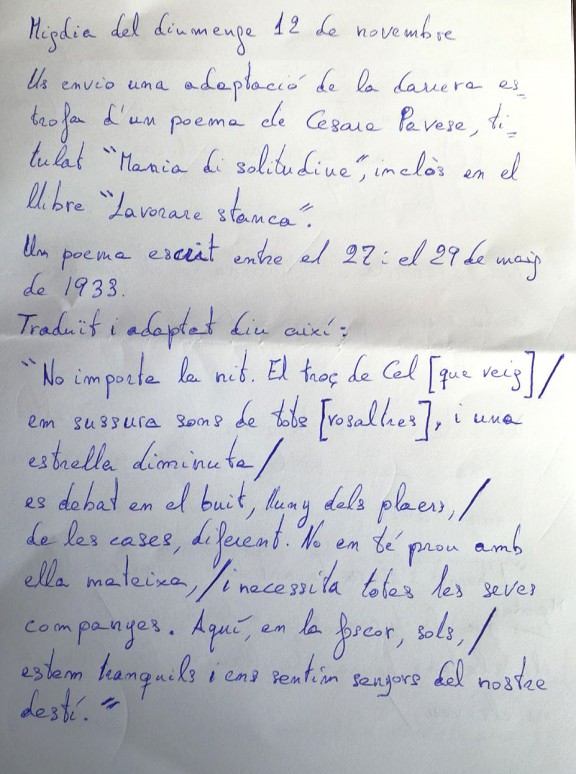 Migdia del diumenge 12 de novembre
Us envio una adaptació de la darrera es=
trofa d'un poema de Cesare Pavese, ti=
tulat "Mania di solitudine", inclòs en el
llibre "Lavorare stanca".
Un poema escrit entre el 27 i el 29 de maig
de 1933.
Traduït i adaptat diu així:
"No importa la nit. El troç de Cel [que veig]/
em sussura sons de tots [vosaltres], i una
estrella diminuta/
es debat en el buit, lluny dels plaers,/
de les cases, diferent. No en té prou amb
ella mateixa,/i necessita totes les seves
companyes. Aquí, en la foscor, sols,/
estem tranquils i ens sentim senyors del nostre
destí."